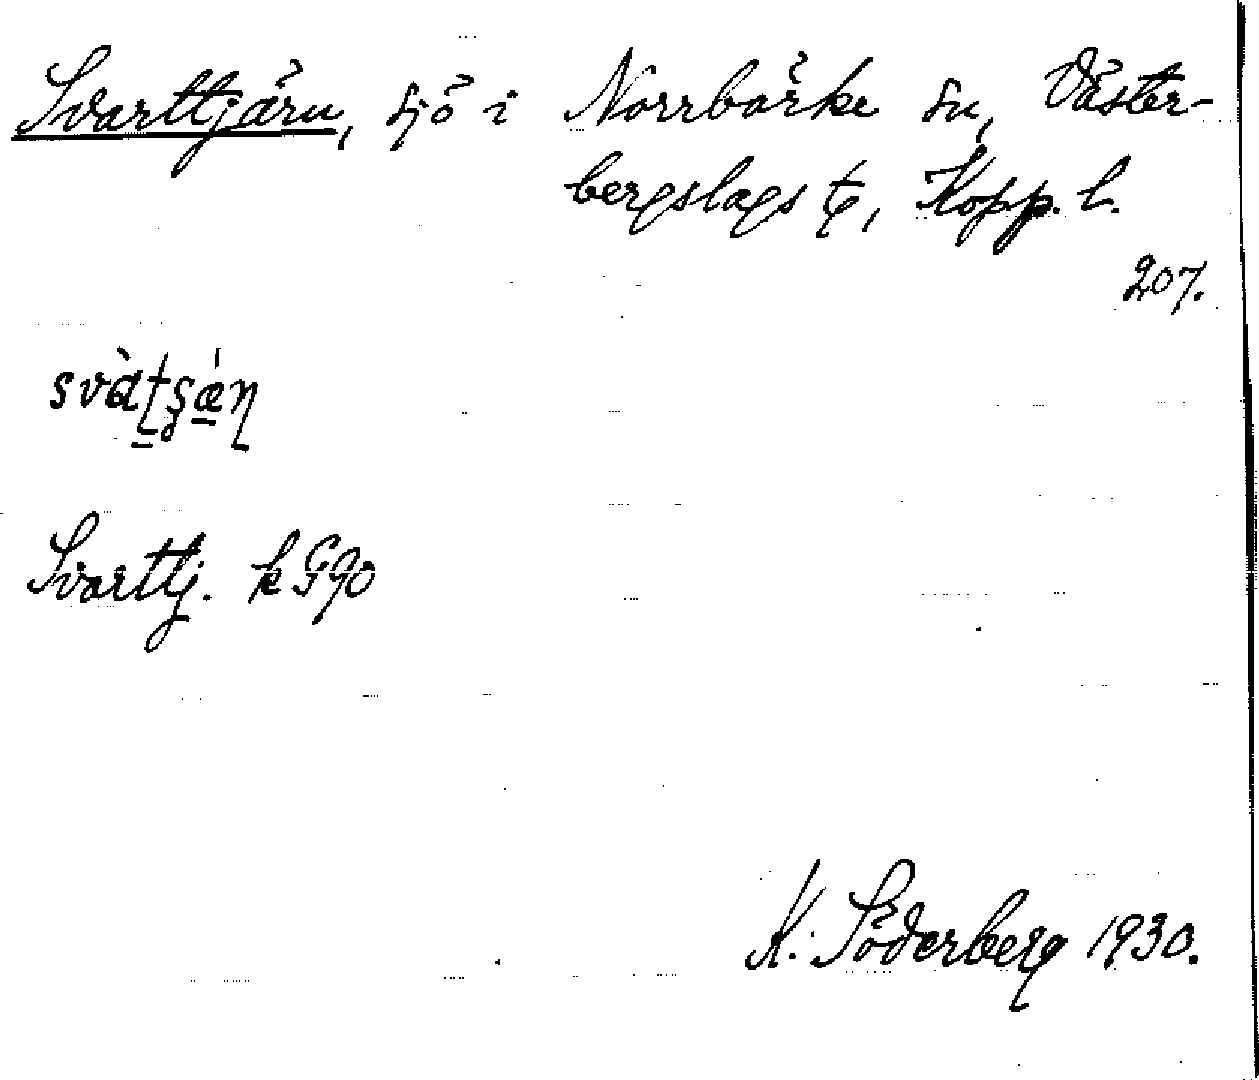 Svarttjärn, sjö i Norrbärke sn, Väster-
bergslags tg, Kopp. l.
207.
svàʈʂǽɳ
Svarttj. k G90
K. Söderberg 1930.